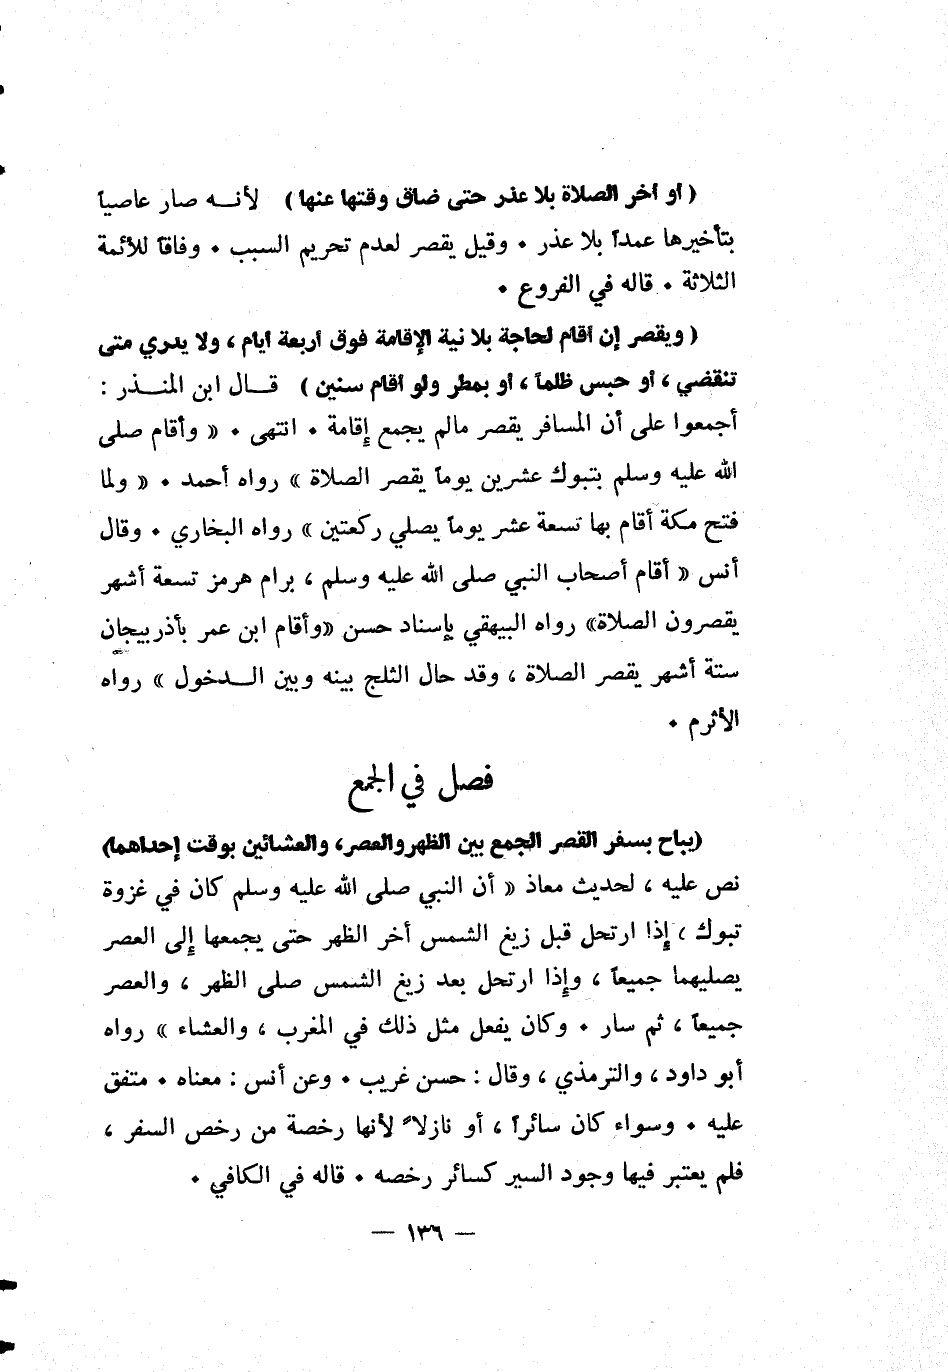 ( أو أخر الصلاة بلا عذر حتى ضاق وقتها عنها ) لأنـــه صار عاصياً
بتأخيرها عمداً بلا عذر . وقيل يقصر لعدم تحريم السبب . وفاقاً للأئمة
الثلاثة . قاله في الفروع .
( ويقصر إن أقام لحاجة بلا نية الإقامة فوق أربعة أيام ، ولا يدري متى
تنقضي ، أو حبس ظلماً ، أو بمطر ولو أقام سنين ) قـــال ابن المنـــذر :
أجمعوا على أن المسافر يقصر مالم يجمع إقامة . انتهى . « وأقام صلى
الله عليه وسلم بتبوك عشرين يوماً يقصر الصلاة » رواه أحمد . « ولما
فتح مكة أقام بها تسعة عشر يوماً يصلي ركعتين » رواه البخاري . وقال
أنس « أقام أصحاب النبي صلى الله عليه وسلم ، برام هرمز تسعة أشهر
يقصرون الصلاة» رواه البيهقي بإسناد حسن «وأقام ابن عمر بأذربيجان
ستة أشهر يقصر الصلاة ، وقد حال الثلج بينه وبين الـــدخول » رواه
الأثرم .
فصل في الجمع
(يباح بسفر القصر الجمع بين الظهروالعصر، والعشائين بوقت إحداهما)
نص عليه ، لحديث معاذ « أن النبي صلى الله عليه وسلم كان في غزوة
تبوك ، إذا ارتحل قبل زيغ الشمس أخر الظهر حتى يجمعها إلى العصر
يصليهما جميعاً ، وإذا ارتحل بعد زيغ الشمس صلى الظهر ، والعصر
جميعاً ، ثم سار . وكان يفعل مثل ذلك في المغرب ، والعشاء » رواه
أبو داود ، والترمذي ، وقال : حسن غريب . وعن أنس : معناه . متفق
عليه . وسواء كان سائراً ، أو نازلاً لأنها رخصة من رخص السفر ،
فلم يعتبر فيها وجود السير كسائر رخصه . قاله في الكافي .
— ١٣٦ —